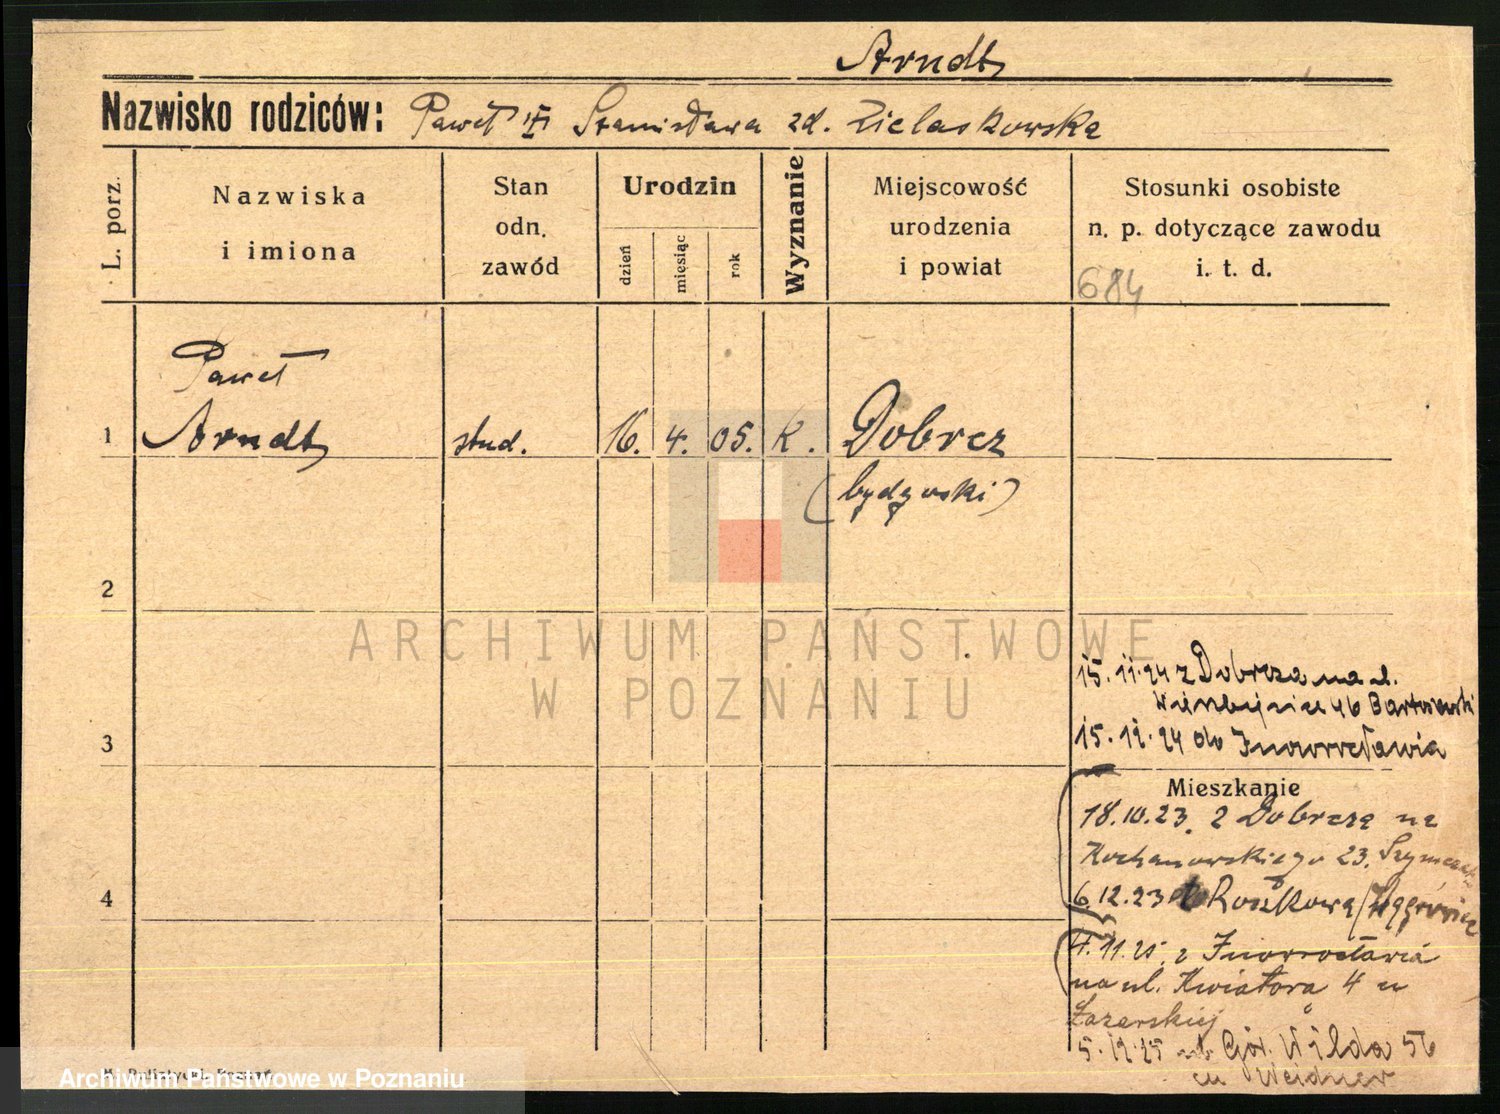 Arndt
Nazwisko rodziców: Paweł i Stanisława zd. Zielaskowska
L. porz.
Nazwiska
i imiona
Stan
odn.
zawód
Urodzin
dzień
miesiąc
rok
Wyznanie
Miejscowość
urodzenia
i powiat
Stosunki osobiste
n. p. dotyczące zawodu
i. t. d.
684
Paweł
1 Arndt stud. 16. 4. 05. K. Dobrcz
(bydgoski)
2
ARCHIWUM PAŃSTWOWE
W POZNANIU
15.11.24 z Dobrcza na ul.
46 Bartoszewski
3
15.12.24 do Inowrocławia
Mieszkanie
18.10.23. z Dobrcza na
Kochanowskiego 23. Szymczak
4
6.12.23 Roszkowa/Wągrówiec
4.11.25. z Inowrocławia
na ul. Kwiatowa 4 u
Łazarskiej
5.12.25 Gór. Wilda 56
u Weidner
Archiwum Państwowe w Poznaniu